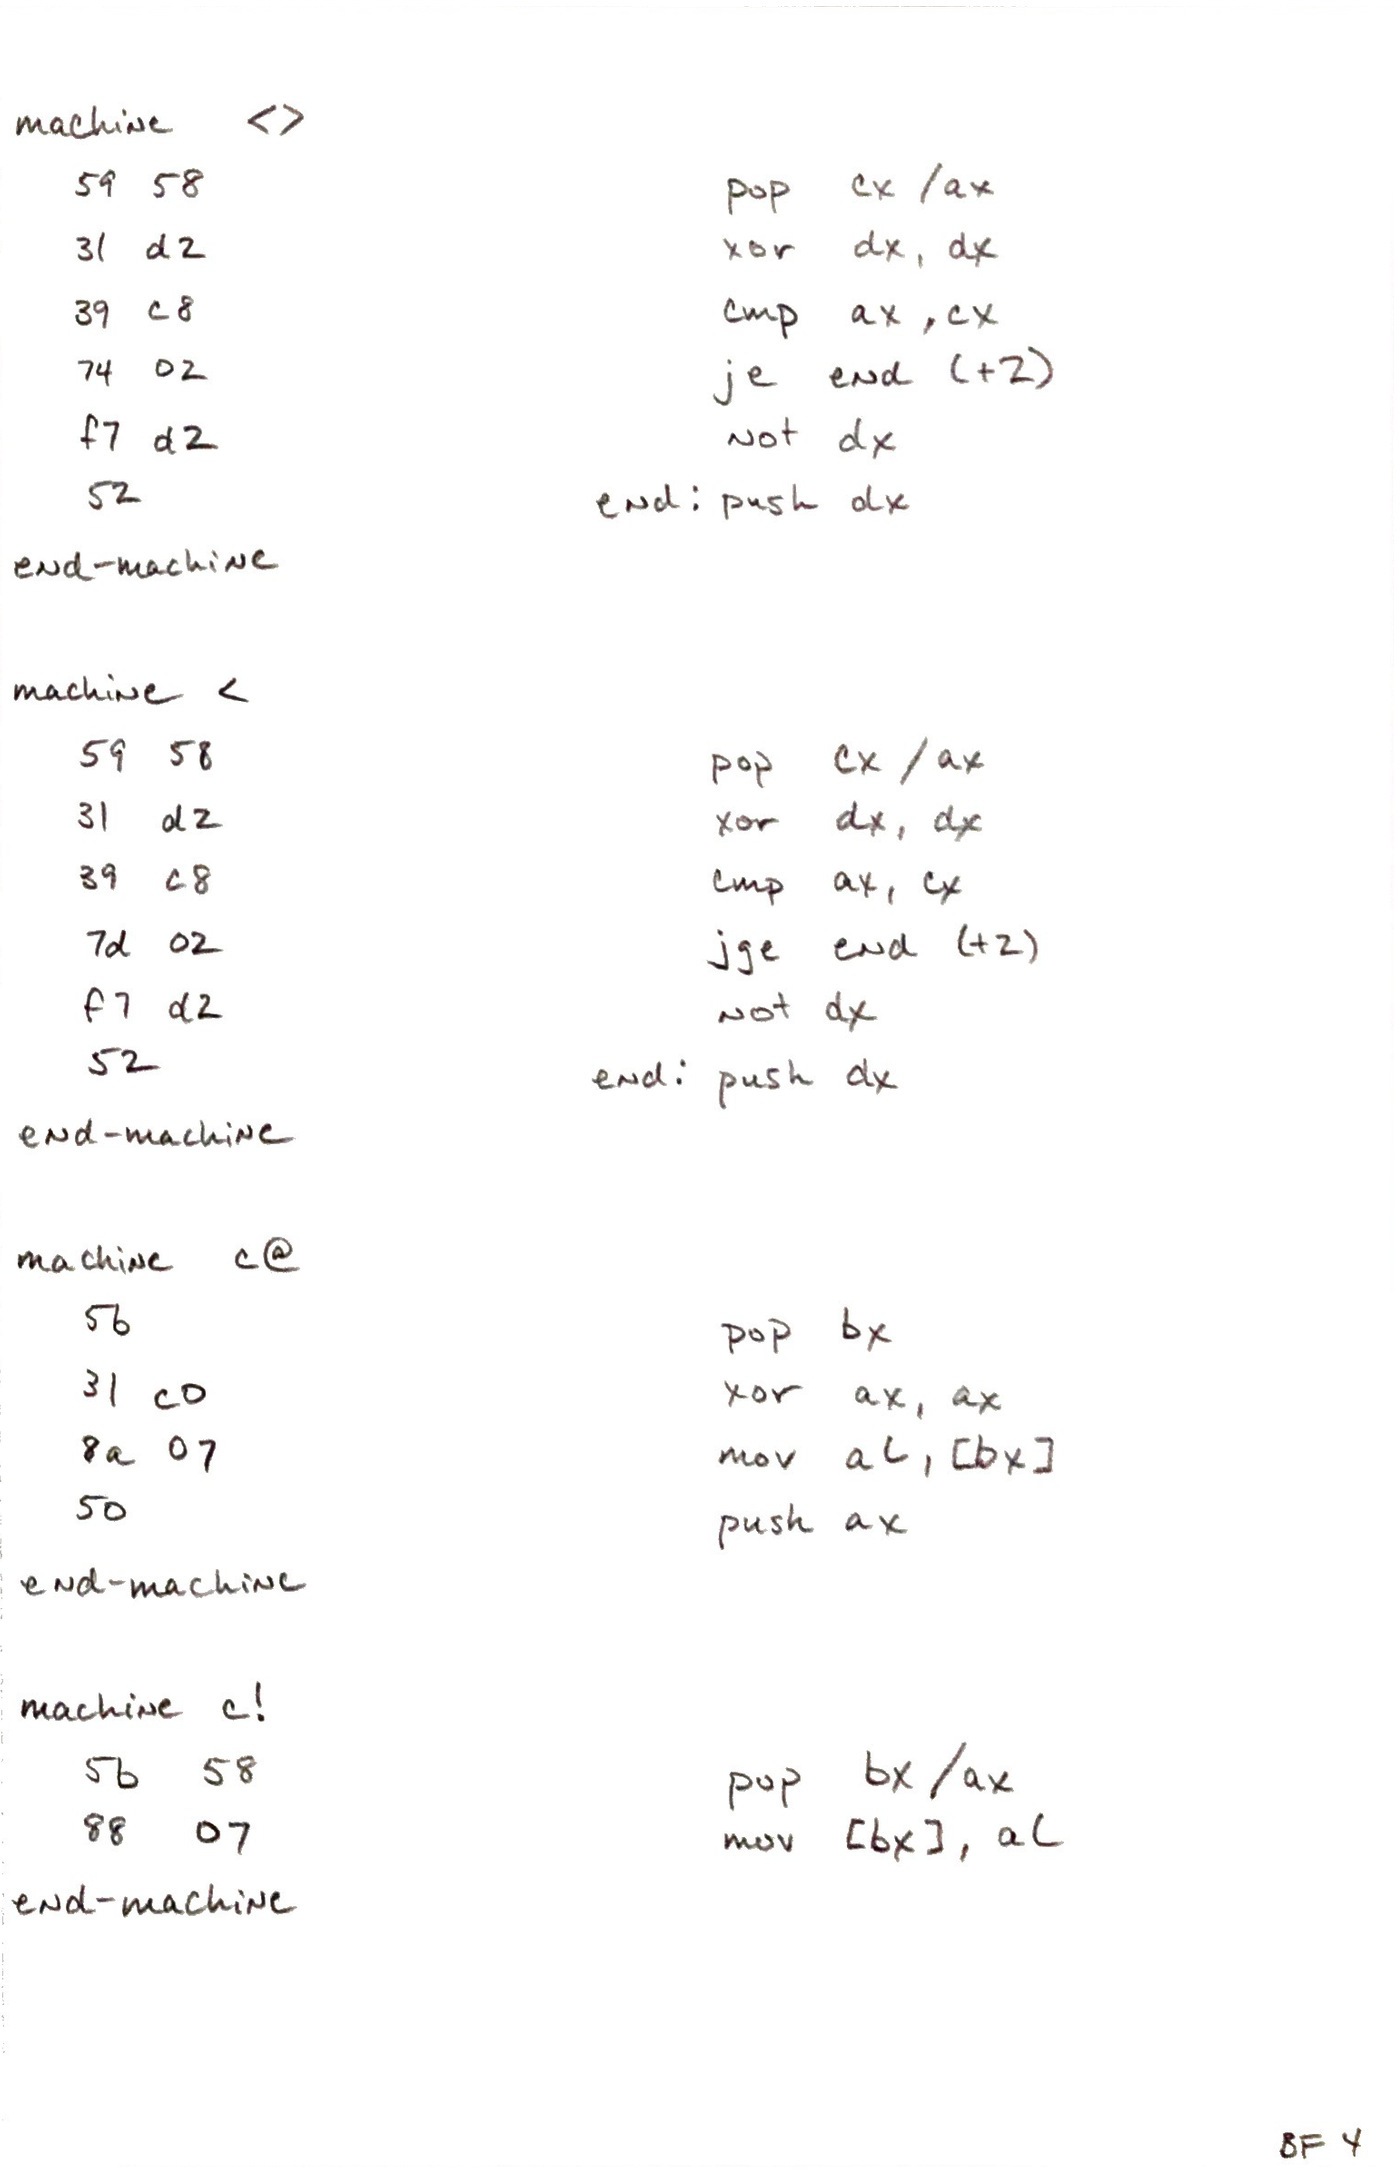 machine <>
59 58 pop cx /ax
31 d2 xor dx, dx
39 c8 cmp ax, cx
74 02 je end (+2)
f7 d2 not dx
52 end: push dx
end-machine
machine <
59 58 pop cx / ax
31 d2 xor dx, dx
39 c8 cmp ax, cx
7d 02 jge end (+2)
f7 d2 not dx
52 end: push dx
end-machine
machine c@
5b pop bx
31 c0 xor ax, ax
8a 07 mov al, [bx]
50 push ax
end-machine
machine c!
5b 58 pop bx /ax
88 07 mov [bx], al
end-machine
BF 4